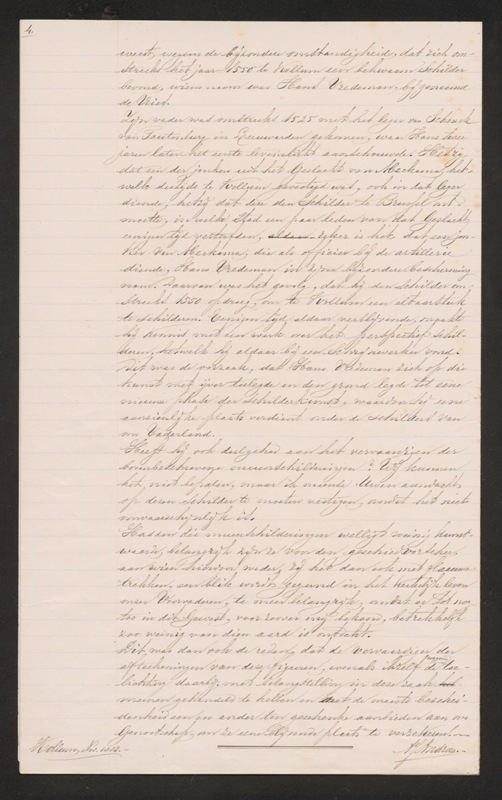 4.
weest, wegens de bijzondere omstandigheid, dat zich om-
streeks het jaar 1550 te Kollum een bekwaam schilder
bevond, wiens naam was Hans Vredeman, bijgenaamd
de Vries.
Zijn vader was omstreeks 1525 met het leger van Schenck
van Toutenburg in Leeuwarden gekomen, waar Hans twee
jaren later het eerste levenslicht aanschouwde. Hetzij
dat een der jonkers uit het geslacht van Meckema, het-
welk destijds te Kollum gevestigd was, ook in dat leger
diende, hetzij dat deze den Schilder te Brussel ont-
moette, in welke Stad een paar leden van dat Geslacht
eenigen tijd vertoefden, zeker is het dat een jon-
ker van Meckema, die als officier bij de artillerie
diende, Hans Vredeman in zijne bijzondere bescherming
nam. Daarvan was het gevolg, dat hij den schilder om-
streeks 1550 opdroeg, om te Kollum een altaarstuk
te schilderen. Eenigen tijd aldaar verblijvende, maakte
hij kennis met een werk over het perspectief schil-
deren, hetwelk hij aldaar bij een Schrijnwerker vond.
Dit was de oorzaak, dat Hans Vredeman zich op die
kunst met ijver toelegde en den grond legde tot eene
nieuwe phase der schilderkunst, waardoor hij eene
aanzienlijke plaats verdient onder de schilders van
ons Vaderland.
Heeft hij ook deelgehad aan het vervaardigen der
bovenbeschrevene muurschilderingen? Wij kunnen
het niet bepalen, maar ik meende Uwe aandacht
op dezen Schilder te moeten vestigen, omdat het niet
onwaarschijnlijk is.
Hadden die muurschilderingen wellicht weinig kunst-
waarde, belangrijk zijn ze voor den geschiedvorscher,
aan wien hierdoor weder, zij het dan ook met flauwe
trekken, een blik wordt gegund in het kerkelijk leven
onzer Voorvaderen, te meer belangrijk, omdat er tot nu
toe in dit Gewest, voor zoover mij bekend, betrekkelijk
zoo weinig van dien aard is ontdekt.
Dit was dan ook de reden, dat de vervaardiger der
afteekeningen van deze figuren, evenals ikzelf de toe-
lichting daarbij, met belangstelling in deze zaak
meenen gehandeld te hebben en met de meeste beschei-
denheid een en ander ten geschenke aanbieden aan uw
Genootschap, om ze een blijvende plaats te verzekeren.
Kollum, Nov.
A. J. Andreae.